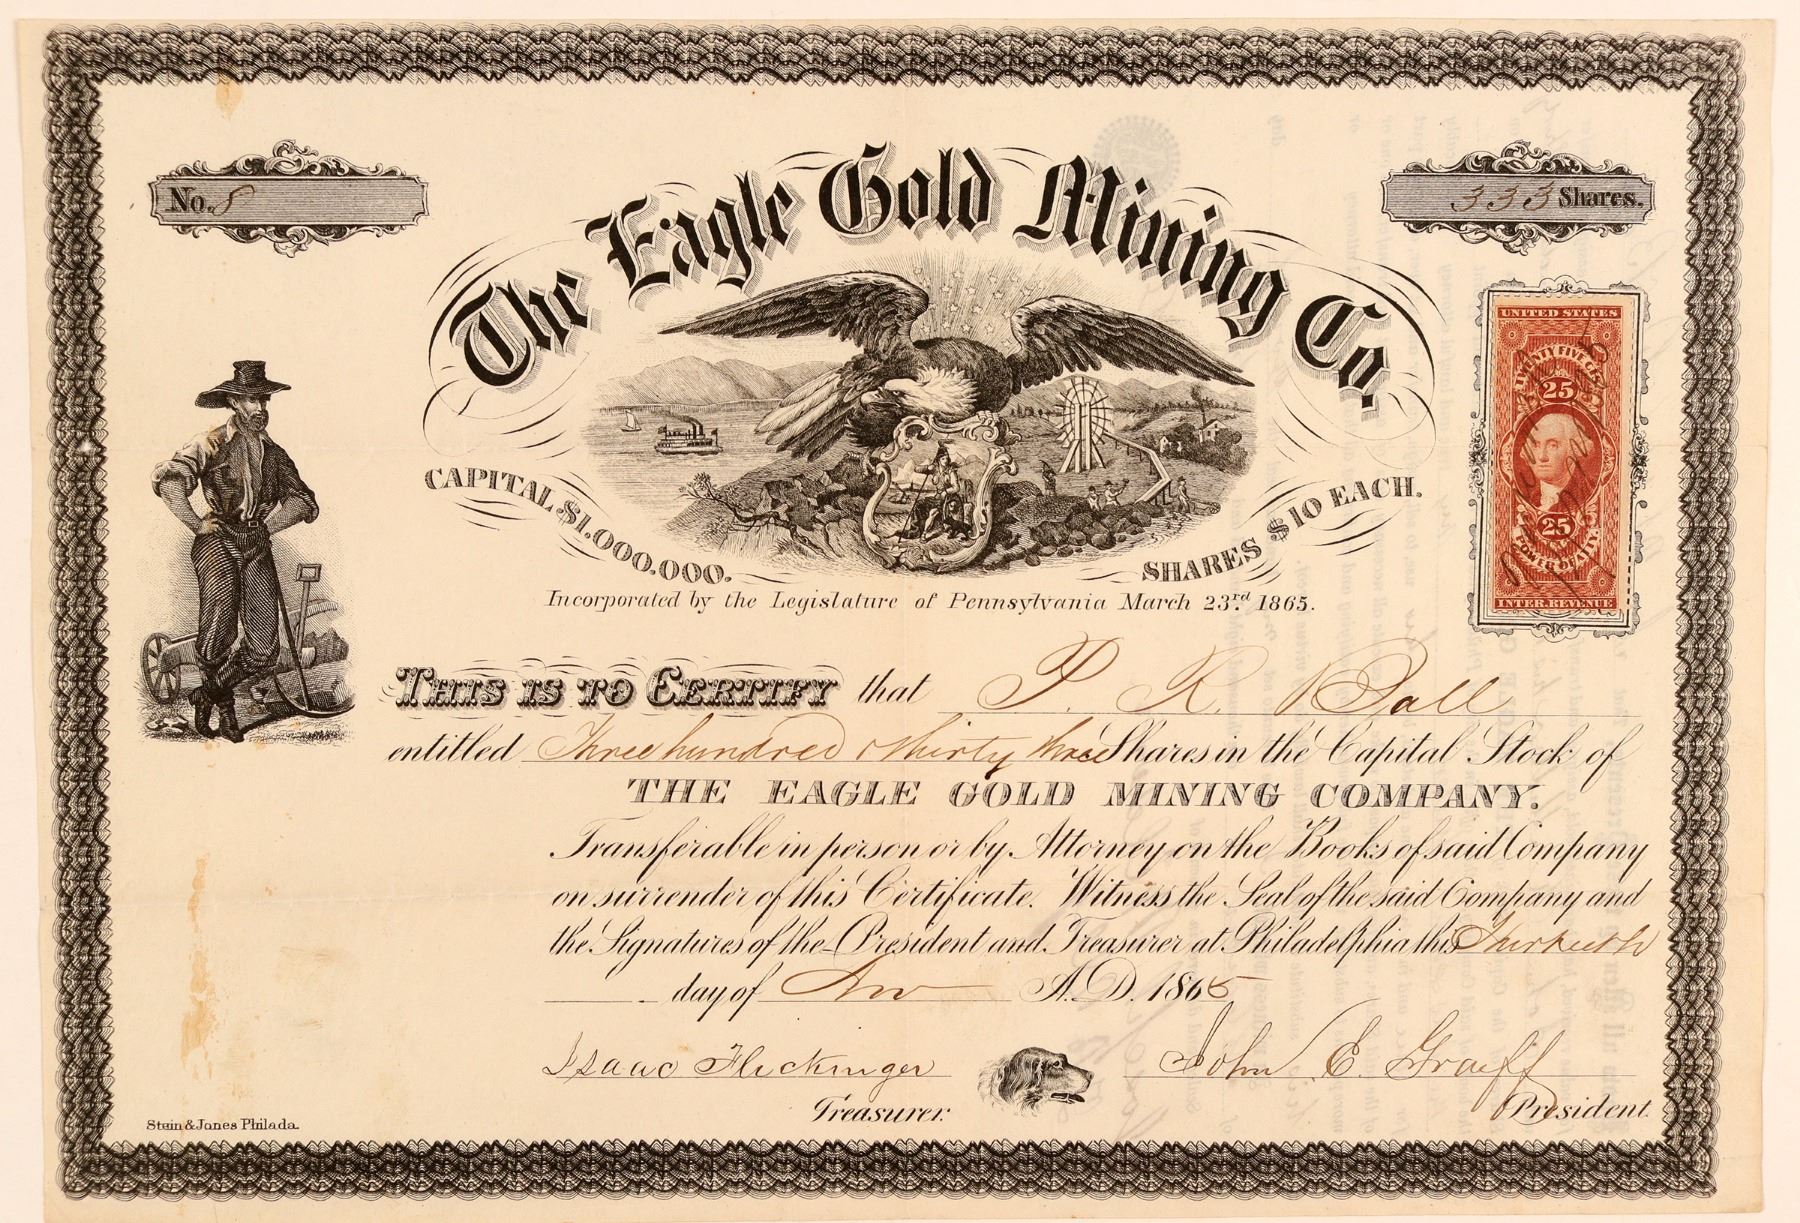 No. 8
333 Shares.
The Eagle Gold Mining Co.
CAPITAL $1.000.000.
SHARES $10 EACH.
UNITED STATES
TWENTY FIVE CENTS
25
25
POWER OF ATTY.
INTER. REVENUE
Incorporated by the Legislature of Pennsylvania March 23rd. 1865.
THIS IS TO CERTIFY that P. R. Ball
entitled Three hundred & thirty three Shares in the Capital Stock of
THE EAGLE GOLD MINING COMPANY.
Transferable in person or by Attorney on the Books of said Company
on surrender of this Certificate. Witness the Seal of the said Company and
the Signatures of the President and Treasurer at Philadelphia this Thirteenth
day of Nov A.D. 1865
Isaac Flickinger
John E. Graeff
Treasurer.
President.
Stein & Jones Philada.